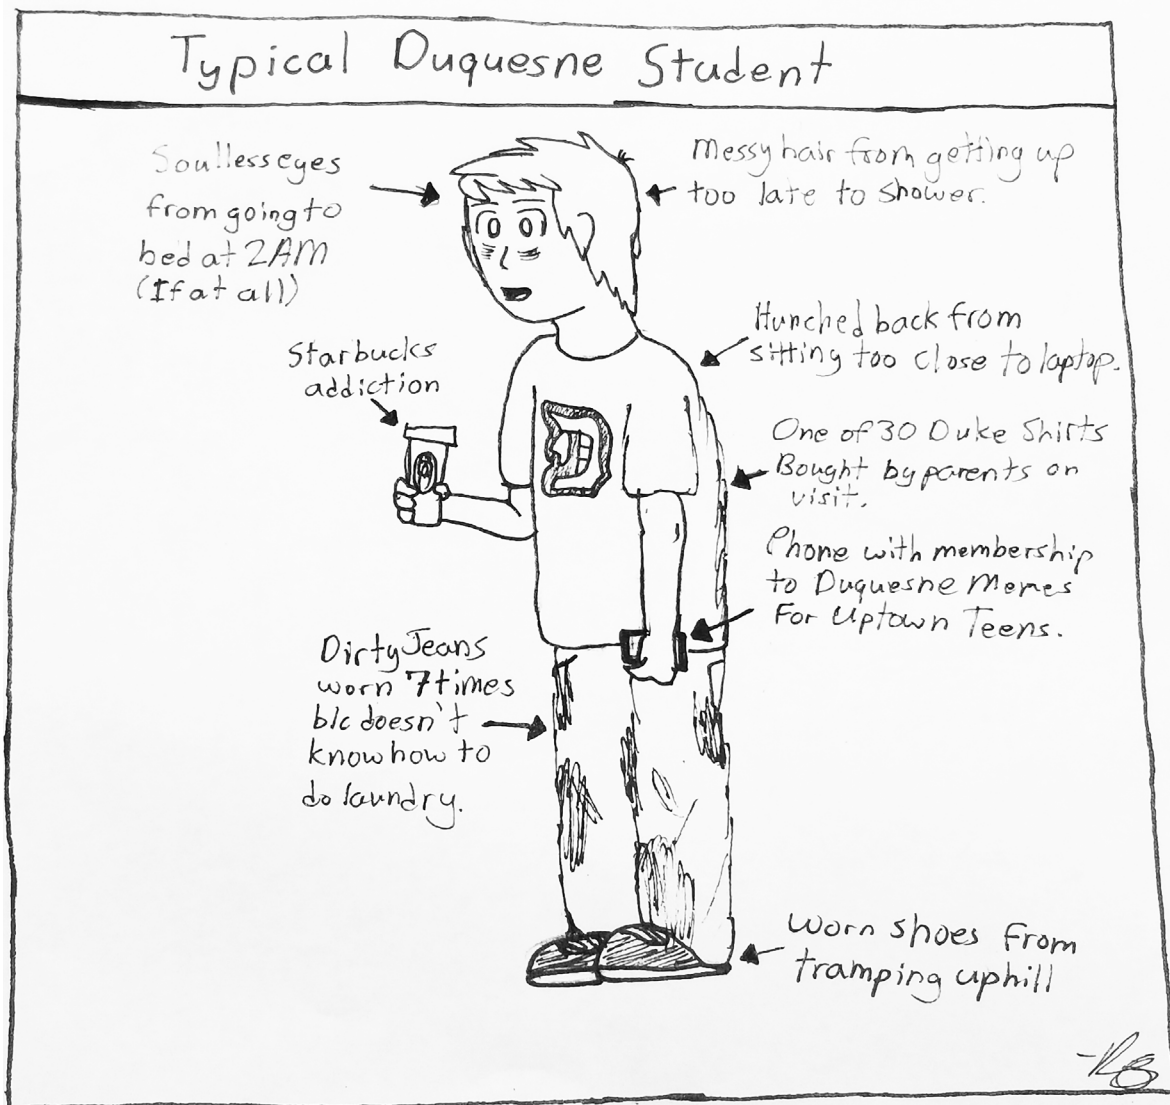 Typical Duquesne Student
Soulless eyes
from going to
bed at 2AM
(If at all)
Messy hair from getting up
too late to shower.
Starbucks
addiction
Hunched back from
sitting too close to laptop.
One of 30 Duke Shirts
Bought by parents on
visit.
Phone with membership
to Duquesne Memes
For Uptown Teens.
Dirty Jeans
worn 7 times
b/c doesn't
know how to
do laundry.
Worn shoes from
tramping uphill
D